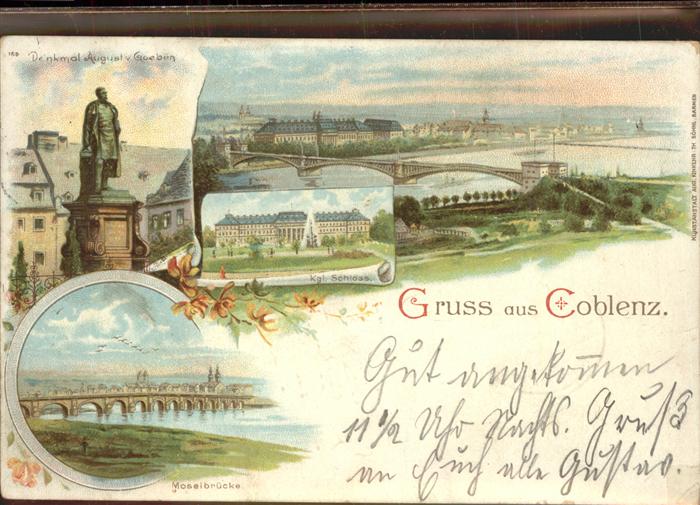 169
Denkmal August v. Goeben
Kgl. Schloss.
Gruss aus Coblenz.
Gut angekommen
11 1/2 Uhr Nachts. Gruß
an Euch alle Gustav.
Moselbrücke
KUNSTANSTALT ROSENB. TH. SÖHN, BARMEN